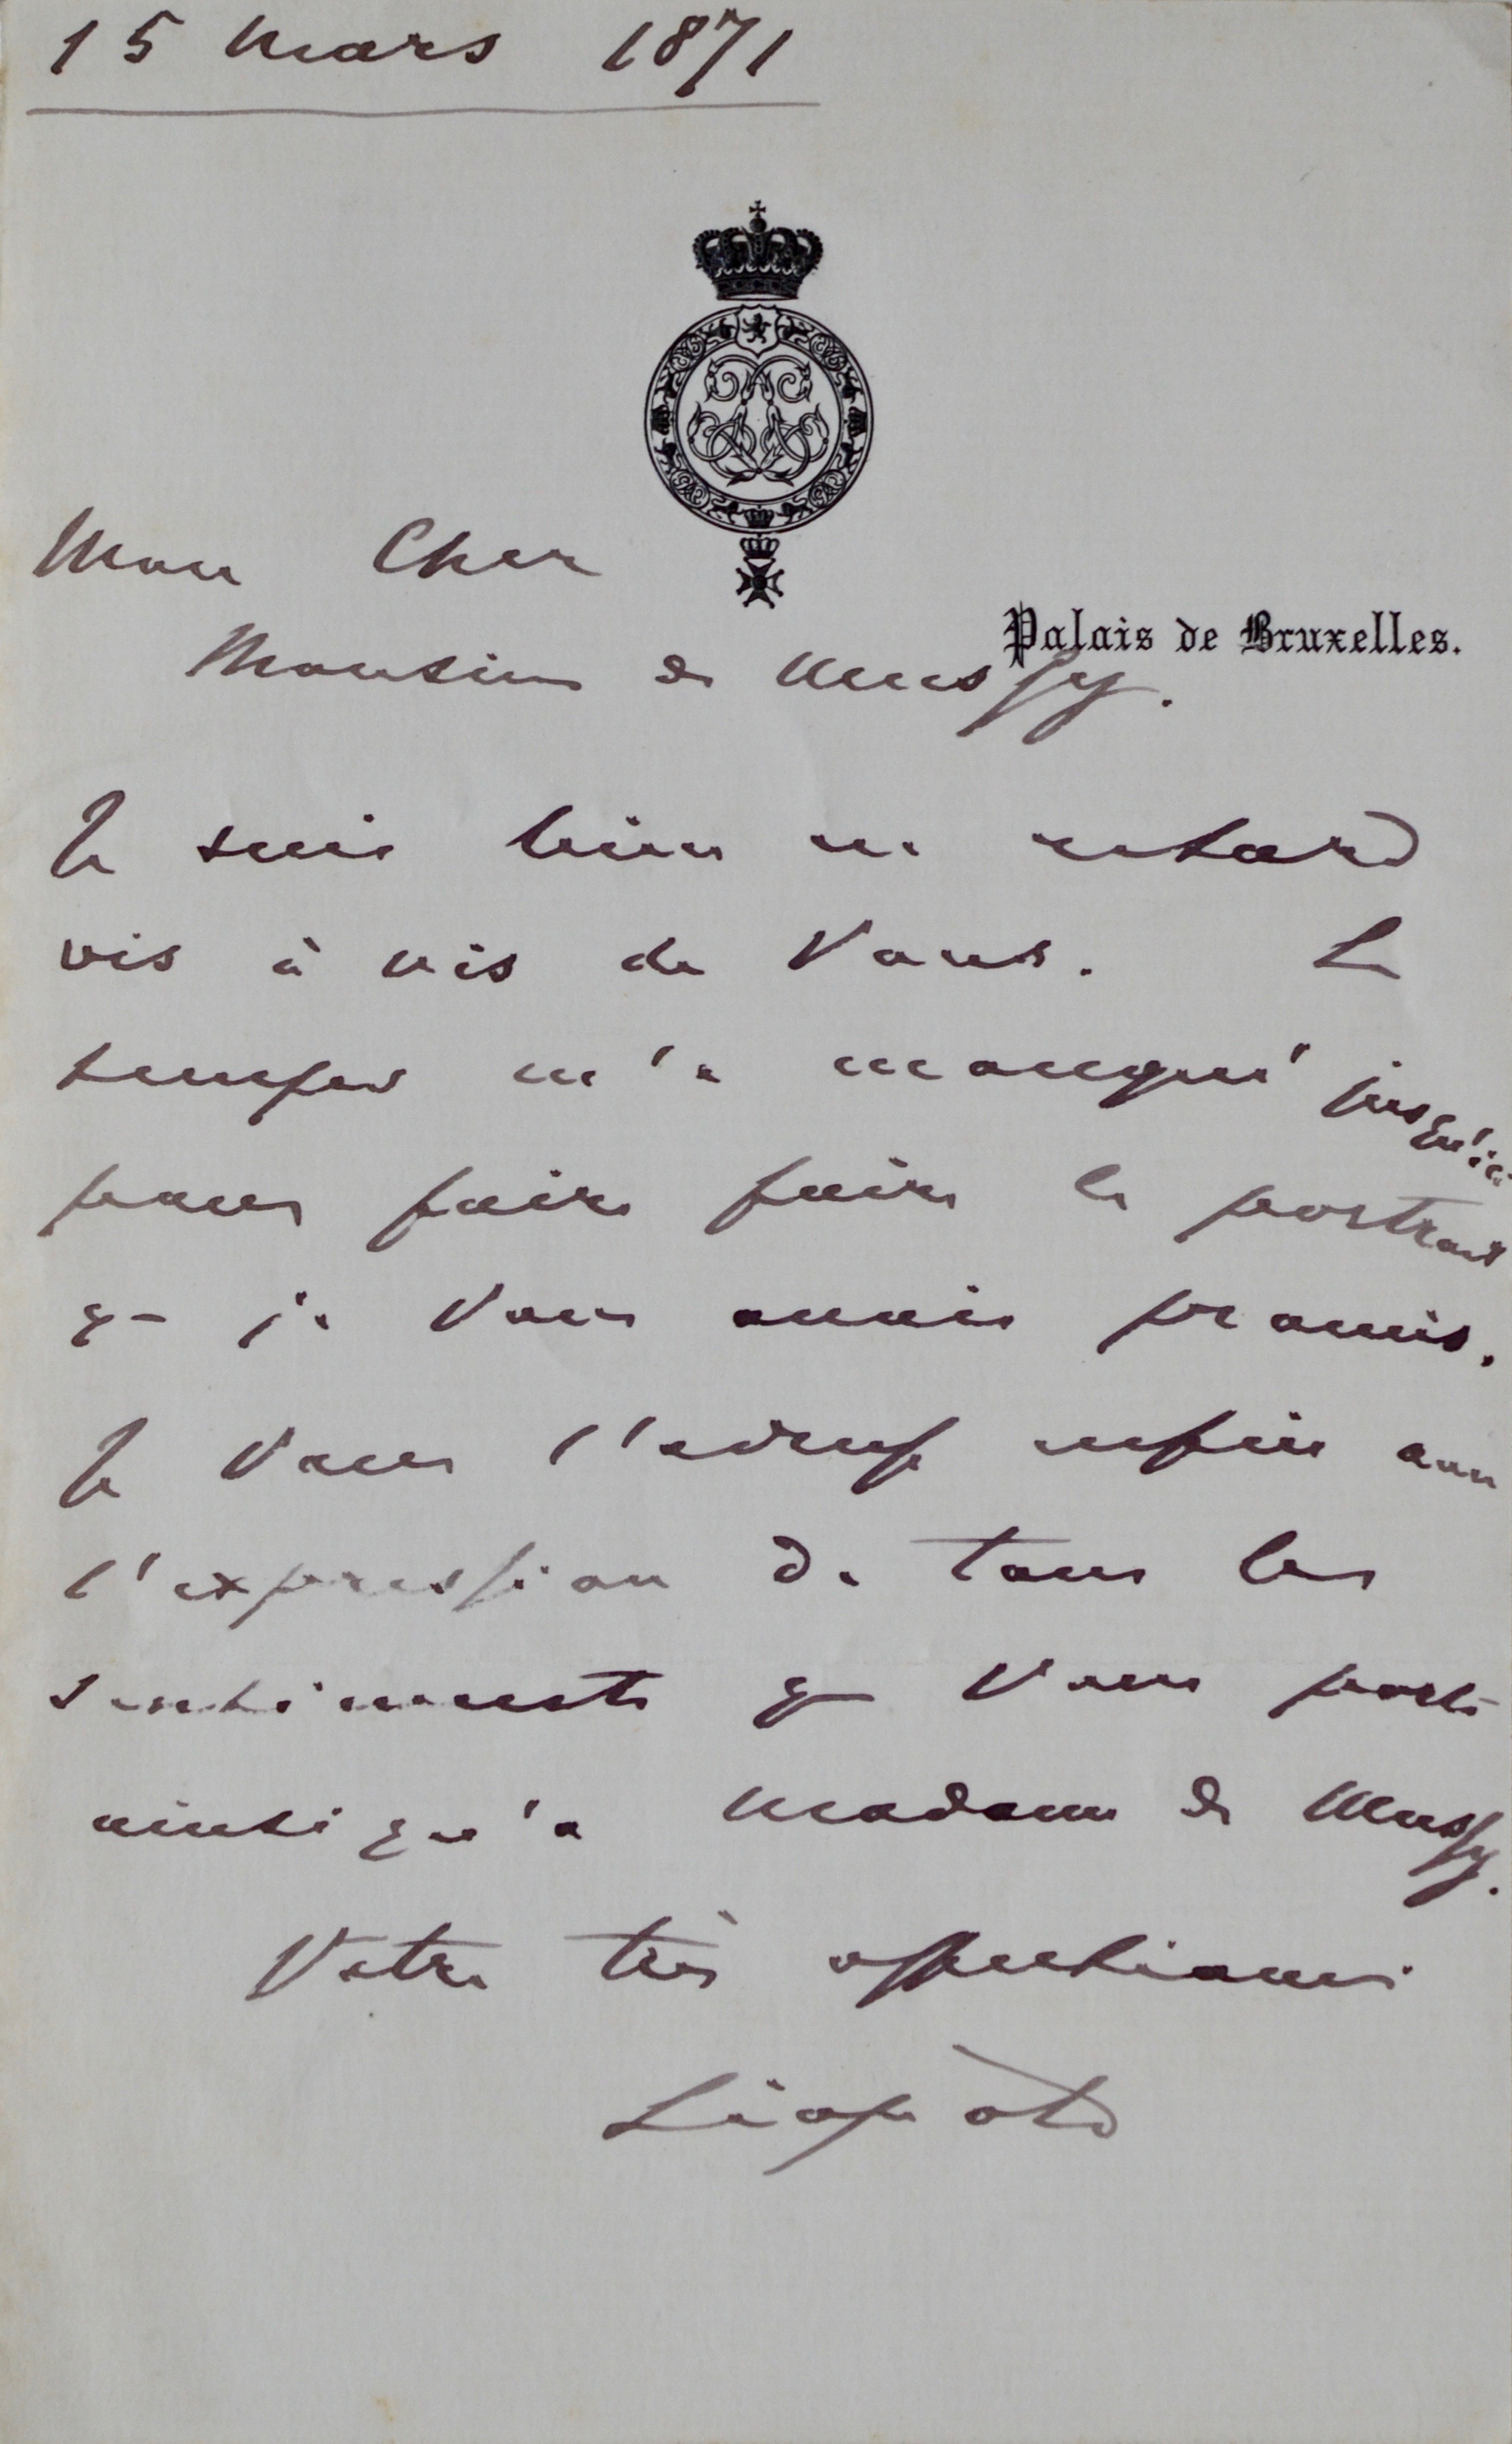 15 Mars 1871
Mon Cher
Palais de Bruxelles.
Monsieur de Mussy.
Je suis bien en retard
vis à vis de Vous. Le
temps m'a manqué jusqu'ici
pour faire faire le portrait
que je Vous avais promis.
Je Vous l'adresse enfin avec
l'expression de tous les
sentiments que Vous porte
ainsi qu'a Madame de Mussy.
Votre très affectionné
Léopold